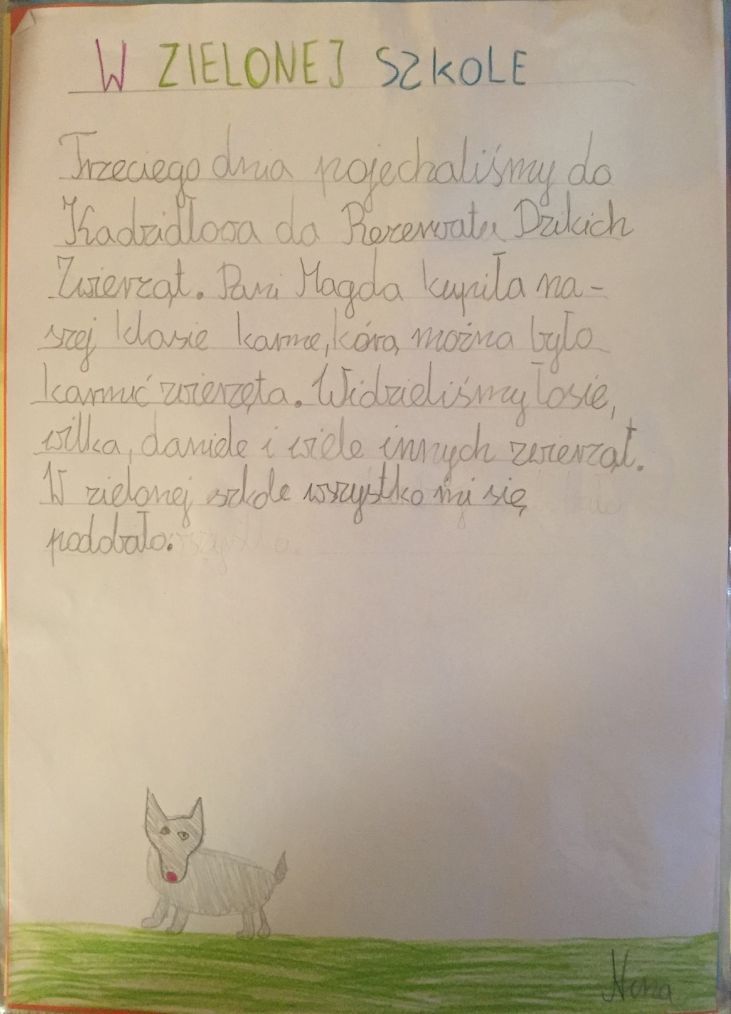 W ZIELONEJ SZKOLE
Trzeciego dnia pojechaliśmy do
Kadzidłowa do Rezerwatu Dzikich
Zwierząt. Pani Magda kupiła na-
szej klasie karmę, kórą można było
karmić zwierzęta. Widzieliśmy łosie,
wilka, daniele i wiele innych zwierząt.
W zielonej szkole wszystko mi się
podobało.